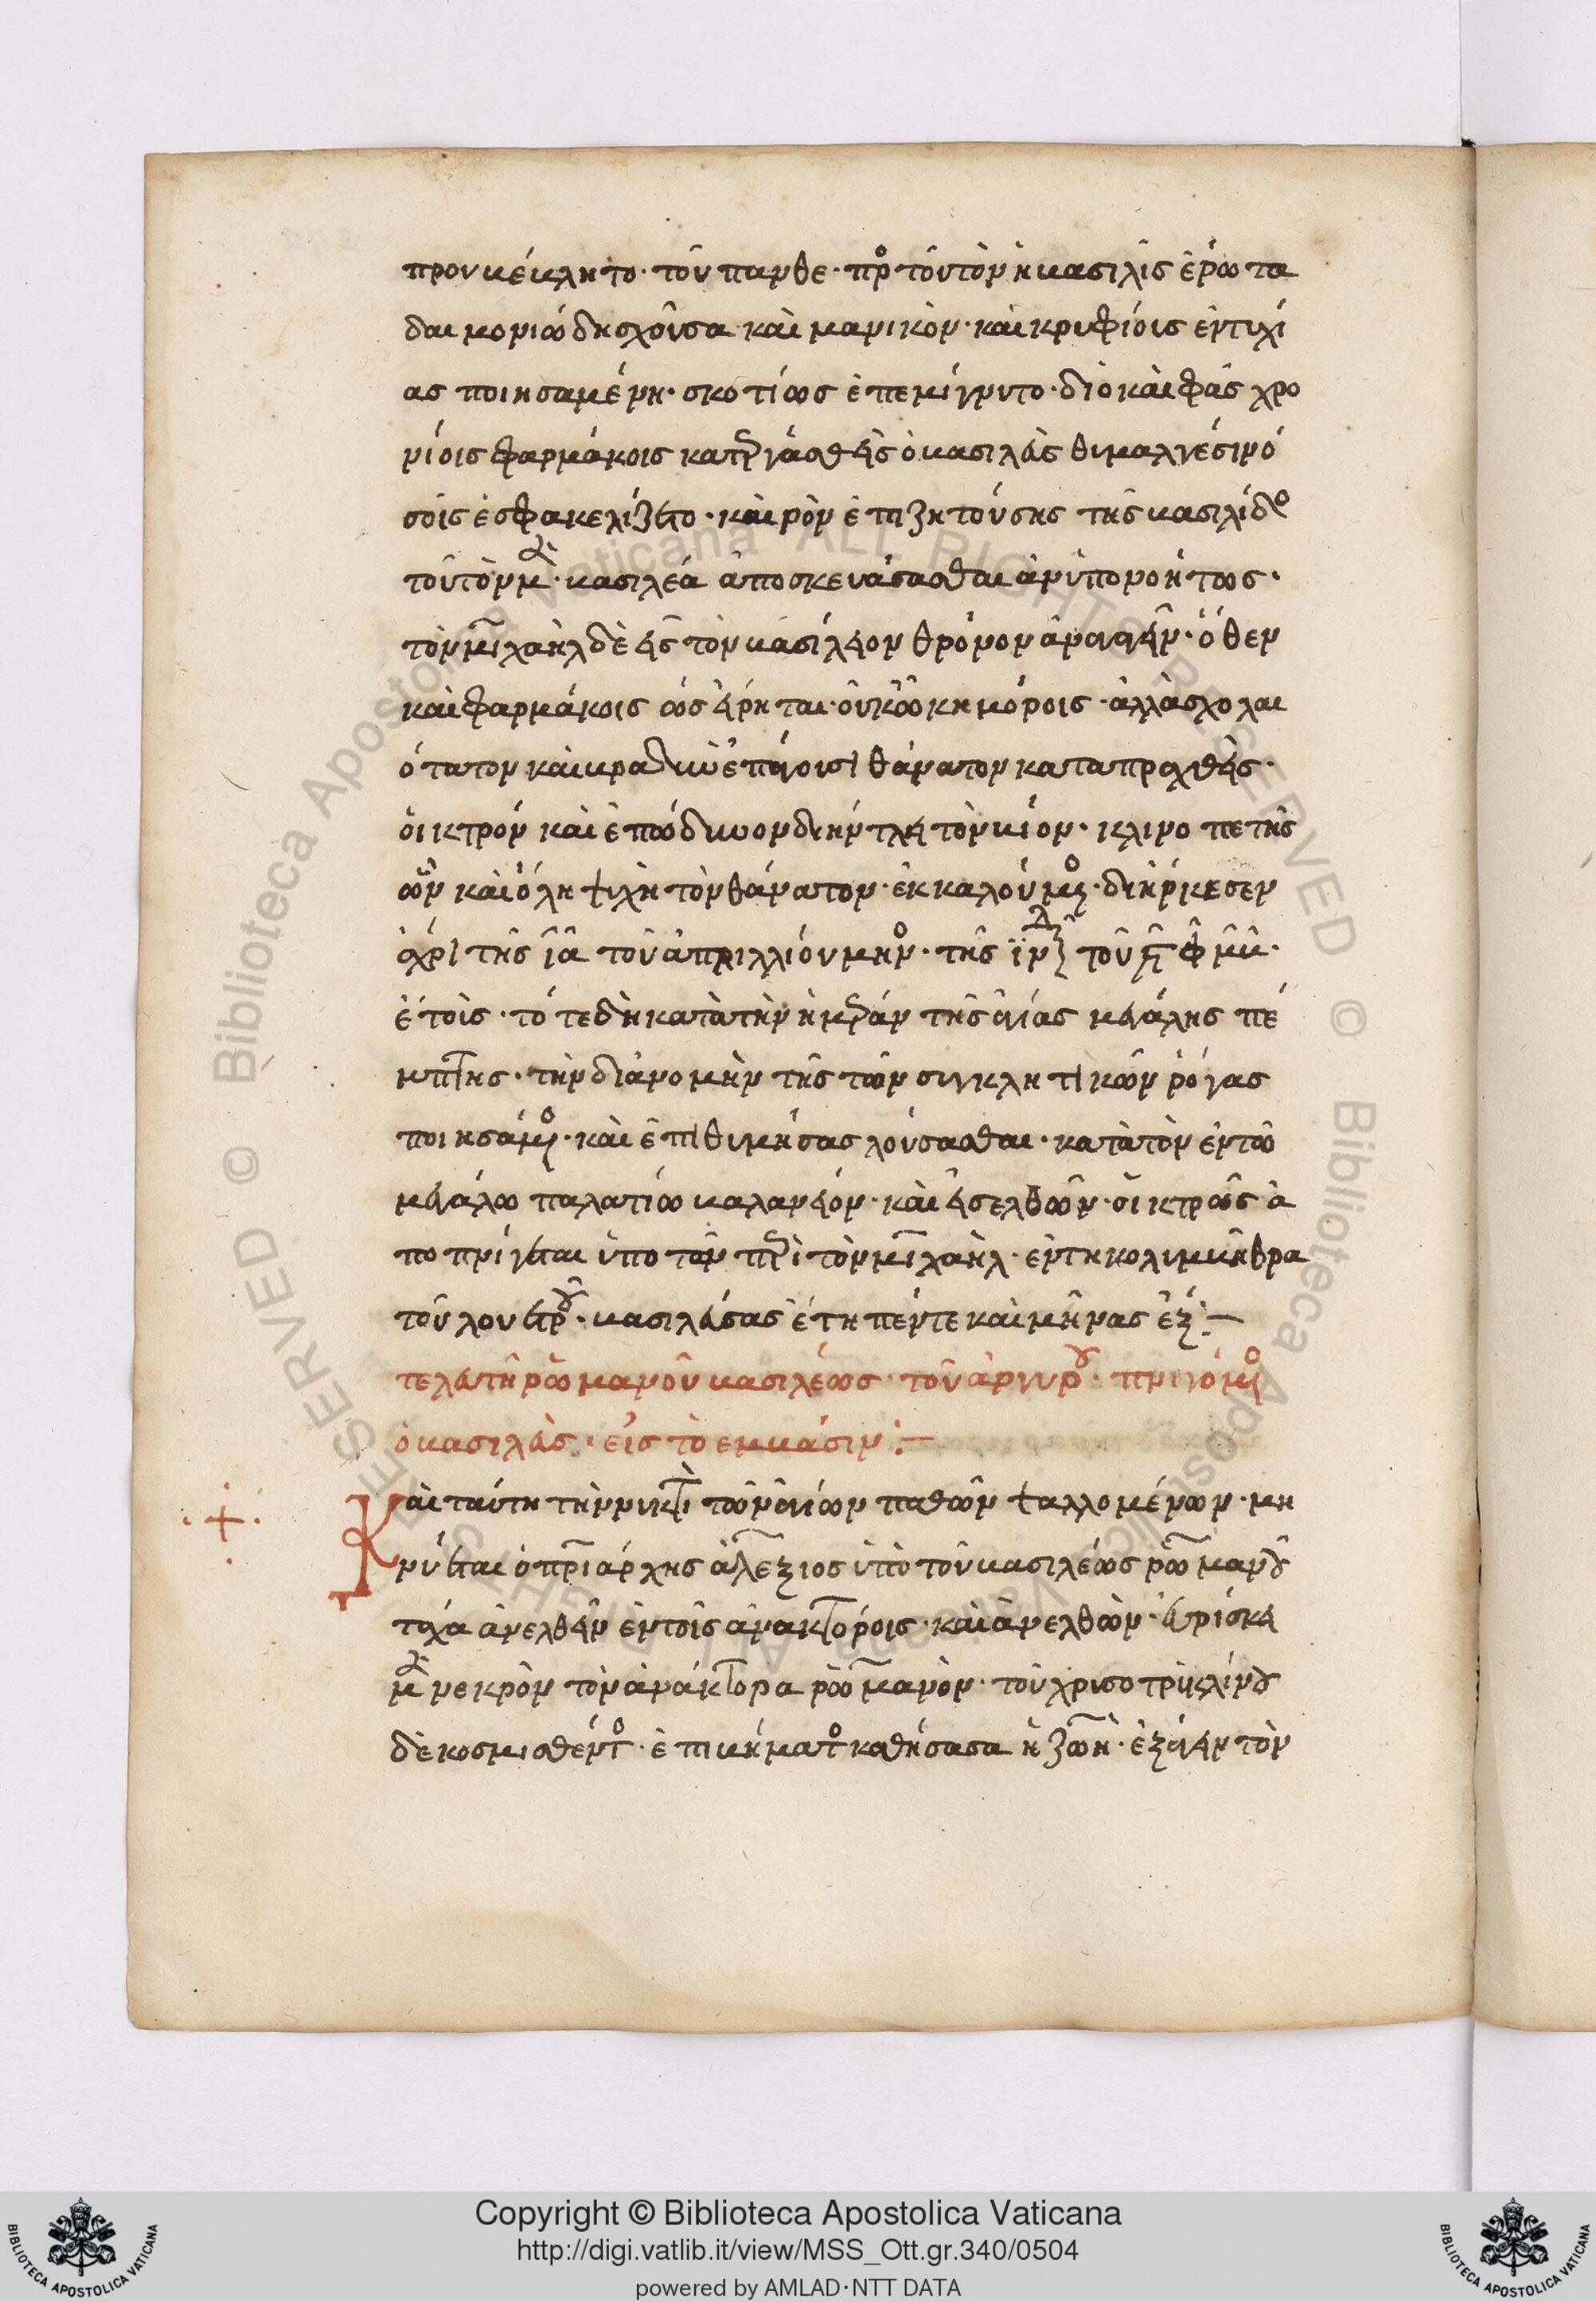 προν κέκλητο· τοῦ πανθε· πρ τοῦτὸν ἡ βασιλὶς ἔρωτα
δαιμονιώδη σχοῦσα καὶ μανικὸν· καὶ κρυφίοις ἐντυχί
ας ποιησαμένη· σκοτίως ἐπεμίγνυτο· διὸ καὶ φασ χρο
νίοις φαρμάκοις κατεργασθεὶς ὁ βασιλεὺς θυμαλγέσι νό
σοις ἐσφακελίζετο· καὶ νὸν ἐπιζητούσης τῆς βασιλίδο
τοῦτὸν μὲν βασιλέα ἀποσκευάσασθαι ἀνυπονοήτως·
τὸν μιχαὴλ δὲ εἰς τὸν βασίλειον θρόνον ἀναγαγεῖν· ὅθεν
καὶ φαρμάκοις ὡς εἴρηται· οὐκ ὠκυμόροις· ἀλλὰ σχολαι
ότατον καὶ βραδὺν ἐπάγουσι θάνατον καταπραχθεὶς·
οἰκτρόν καὶ ἐπώδυνον διήντλει τὸν βίον· κλινοπετὴς
ὢν καὶ ὅλη ψυχὴ τὸν θάνατον· ἐκκαλούμενος· διήρκεσεν
ἄχρι τῆς ια τοῦ ἀπριλλίου μην· τῆς ἰνδ τοῦ ϛ φ μ β·
ἔτοις· τό τε δὴ κατὰ τὴν ἡμέραν τῆς ἁγίας μεγάλης πέ
μπτης· τὴν διανομὴν τῆς τῶν συγκλητικῶν ρόγας
ποιησάμενος· καὶ ἐπιθυμήσας λούσασθαι· κατὰ τὸν ἐν τῶ
μεγάλω παλατίω βαλανεόν· καὶ εἰσελθὼν· οἰκτρῶς ἀ
ποπνίγεται ὑπο τῶν περὶ τὸν μιχαὴλ· ἐν τη κολυμβήθρα
τοῦ λουετροῦ· βασιλεύσας ἔτη πέντε καὶ μῆνας ἕξ:—
τελευτὴ ρωμανοῦ βασιλέως τοῦ ἀργυροῦ· πνιγόμενος
ὁ βασιλεὺς· εἰς τὸ εμβάσιν:—
Καὶ ταύτη τὴν νυκτὶ τῶν ἁγίων παθῶν ψαλλομένων· μη
νύεται ὁ πριάρχης ἀλέξιος ὑπὸ τοῦ βασιλέως ρωμανοῦ
ταχα ἀνελθεῖν ἐν τοῖς ἀνακτόροις· καὶ ἀνελθὼν· εὑρίσκει
μὲν νεκρὸν τὸν ἀνάκτορα ρωμανὸν· τοῦ χρυσοτρικλίνου
δὲ κοσμισθέντος· ἐπι βήματος καθήσασα ἡ ζωὴ· ἐξάγειν τὸν
Copyright © Biblioteca Apostolica Vaticana
http://digi.vatlib.it/view/MSS_Ott.gr.340/0504
powered by AMLAD·NTT DATA